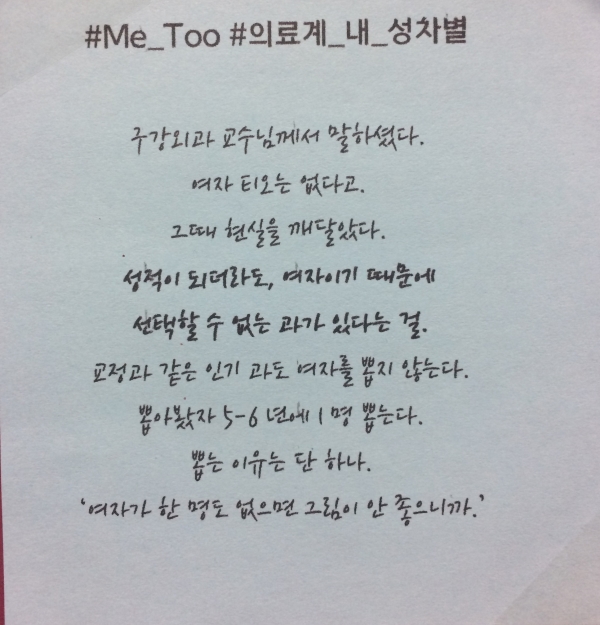 #Me_Too #의료계_내_성차별
구강외과 교수님께서 말하셨다.
여자 티오는 없다고.
그때 현실을 깨달았다.
성적이 되더라도, 여자이기 때문에
선택할 수 없는 과가 있다는 걸.
교정과 같은 인기 과도 여자를 뽑지 않는다.
뽑아봤자 5-6년에 1명 뽑는다.
뽑는 이유는 단 하나.
'여자가 한 명도 없으면 그림이 안 좋으니까.'